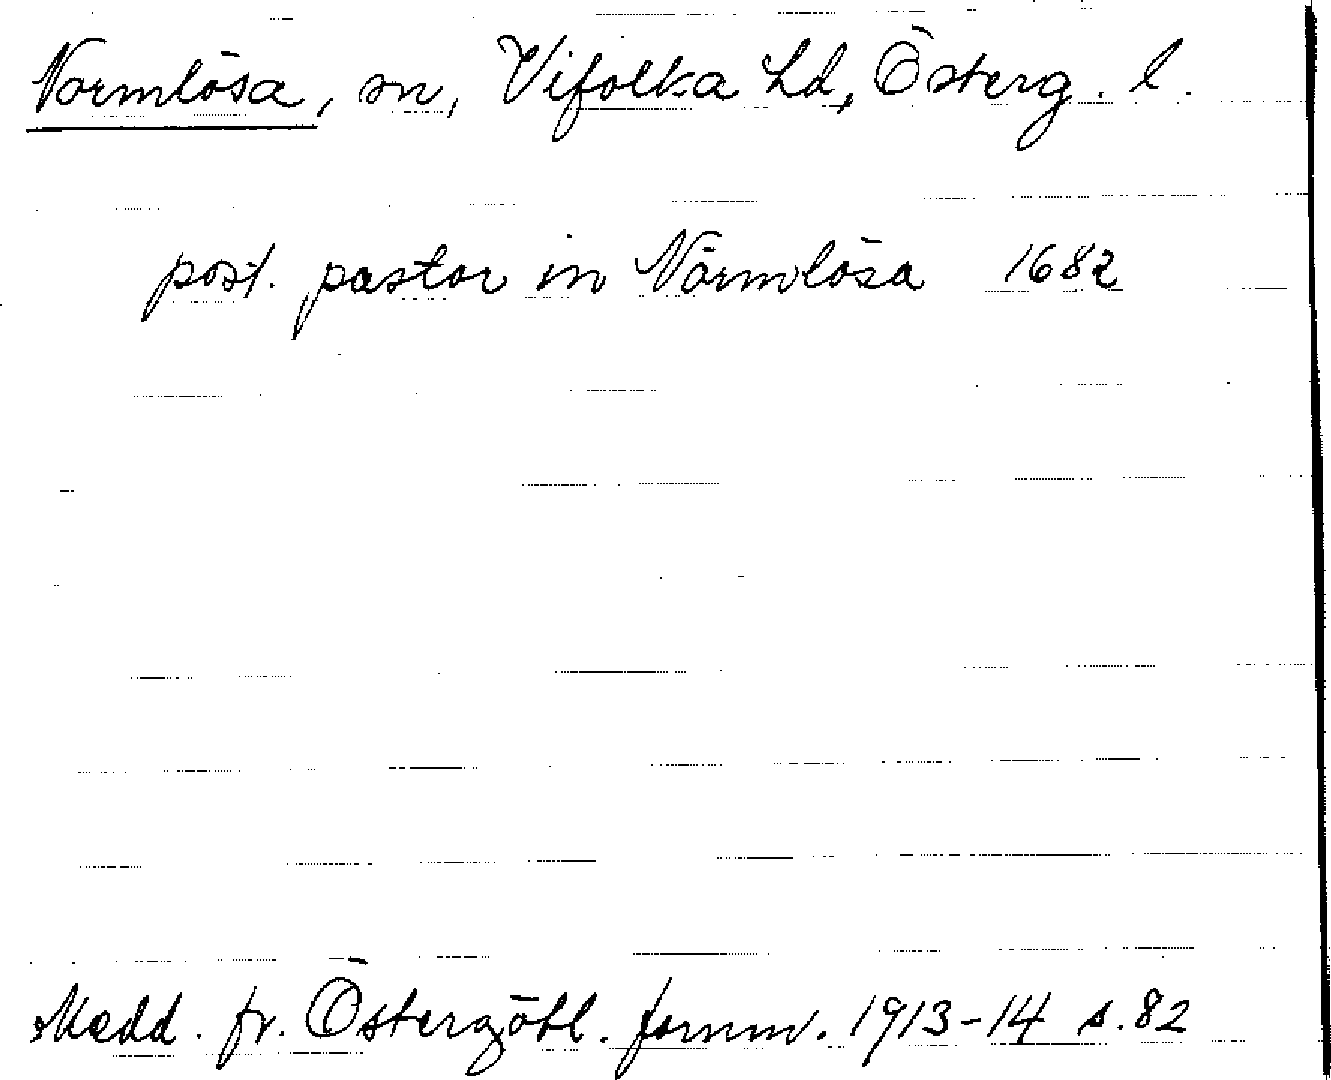 Normlösa, sn, Vifolka hd, Österg. l.
post. pastor in Nörmlösa 1682
Medd. fr. Östergötl. fornm. 1913-14 s. 82